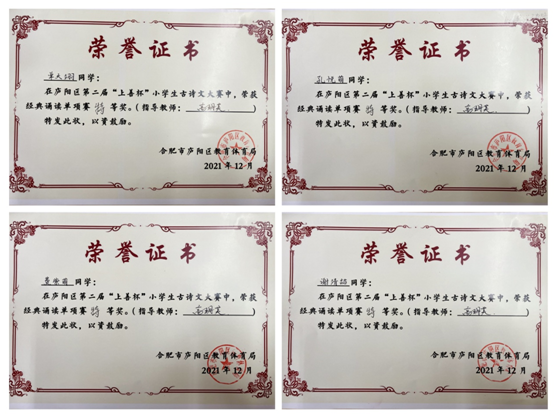 荣誉证书
同学：
在庐阳区第二届“上善杯”小学生古诗文大赛中，荣获
经典诵读单项赛 特 等奖。（指导教师：）
特发此状，以资鼓励。
合肥市庐阳区教育体育局
2021年12月
荣誉证书
孔悦萌同学：
在庐阳区第二届“上善杯”小学生古诗文大赛中，荣获
经典诵读单项赛 特 等奖。（指导教师：）
特发此状，以资鼓励。
合肥市庐阳区教育体育局
2021年12月
荣誉证书
同学：
在庐阳区第二届“上善杯”小学生古诗文大赛中，荣获
经典诵读单项赛 特 等奖。（指导教师：）
特发此状，以资鼓励。
合肥市庐阳区教育体育局
2021年12月
荣誉证书
同学：
在庐阳区第二届“上善杯”小学生古诗文大赛中，荣获
经典诵读单项赛 特 等奖。（指导教师：）
特发此状，以资鼓励。
合肥市庐阳区教育体育局
2021年12月